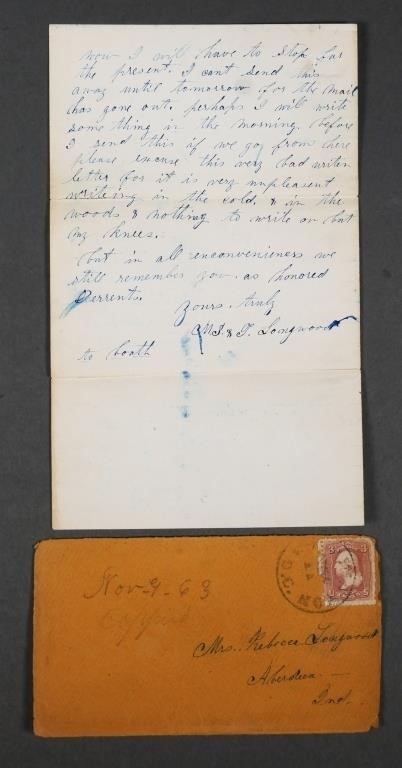 now I will have to stop for
the present. I cant send this
away until tomorrow for the mail
has gone out. perhaps I will write
some thing in the morning. before
I send this if we go from here
please excuse this very bad writen
letter for it is very unpleasent
writeing in the cold. & in the
woods & nothing to write on but
my knees.
but in all enconveniences we
still remember you. as honored
Perrents.
yours. truly
M. T. & T. Longwood
to boath
Nov-9-63
Copied
3 3
U S
Mrs. Rebecca Longwood
Aberdeen
Ind.